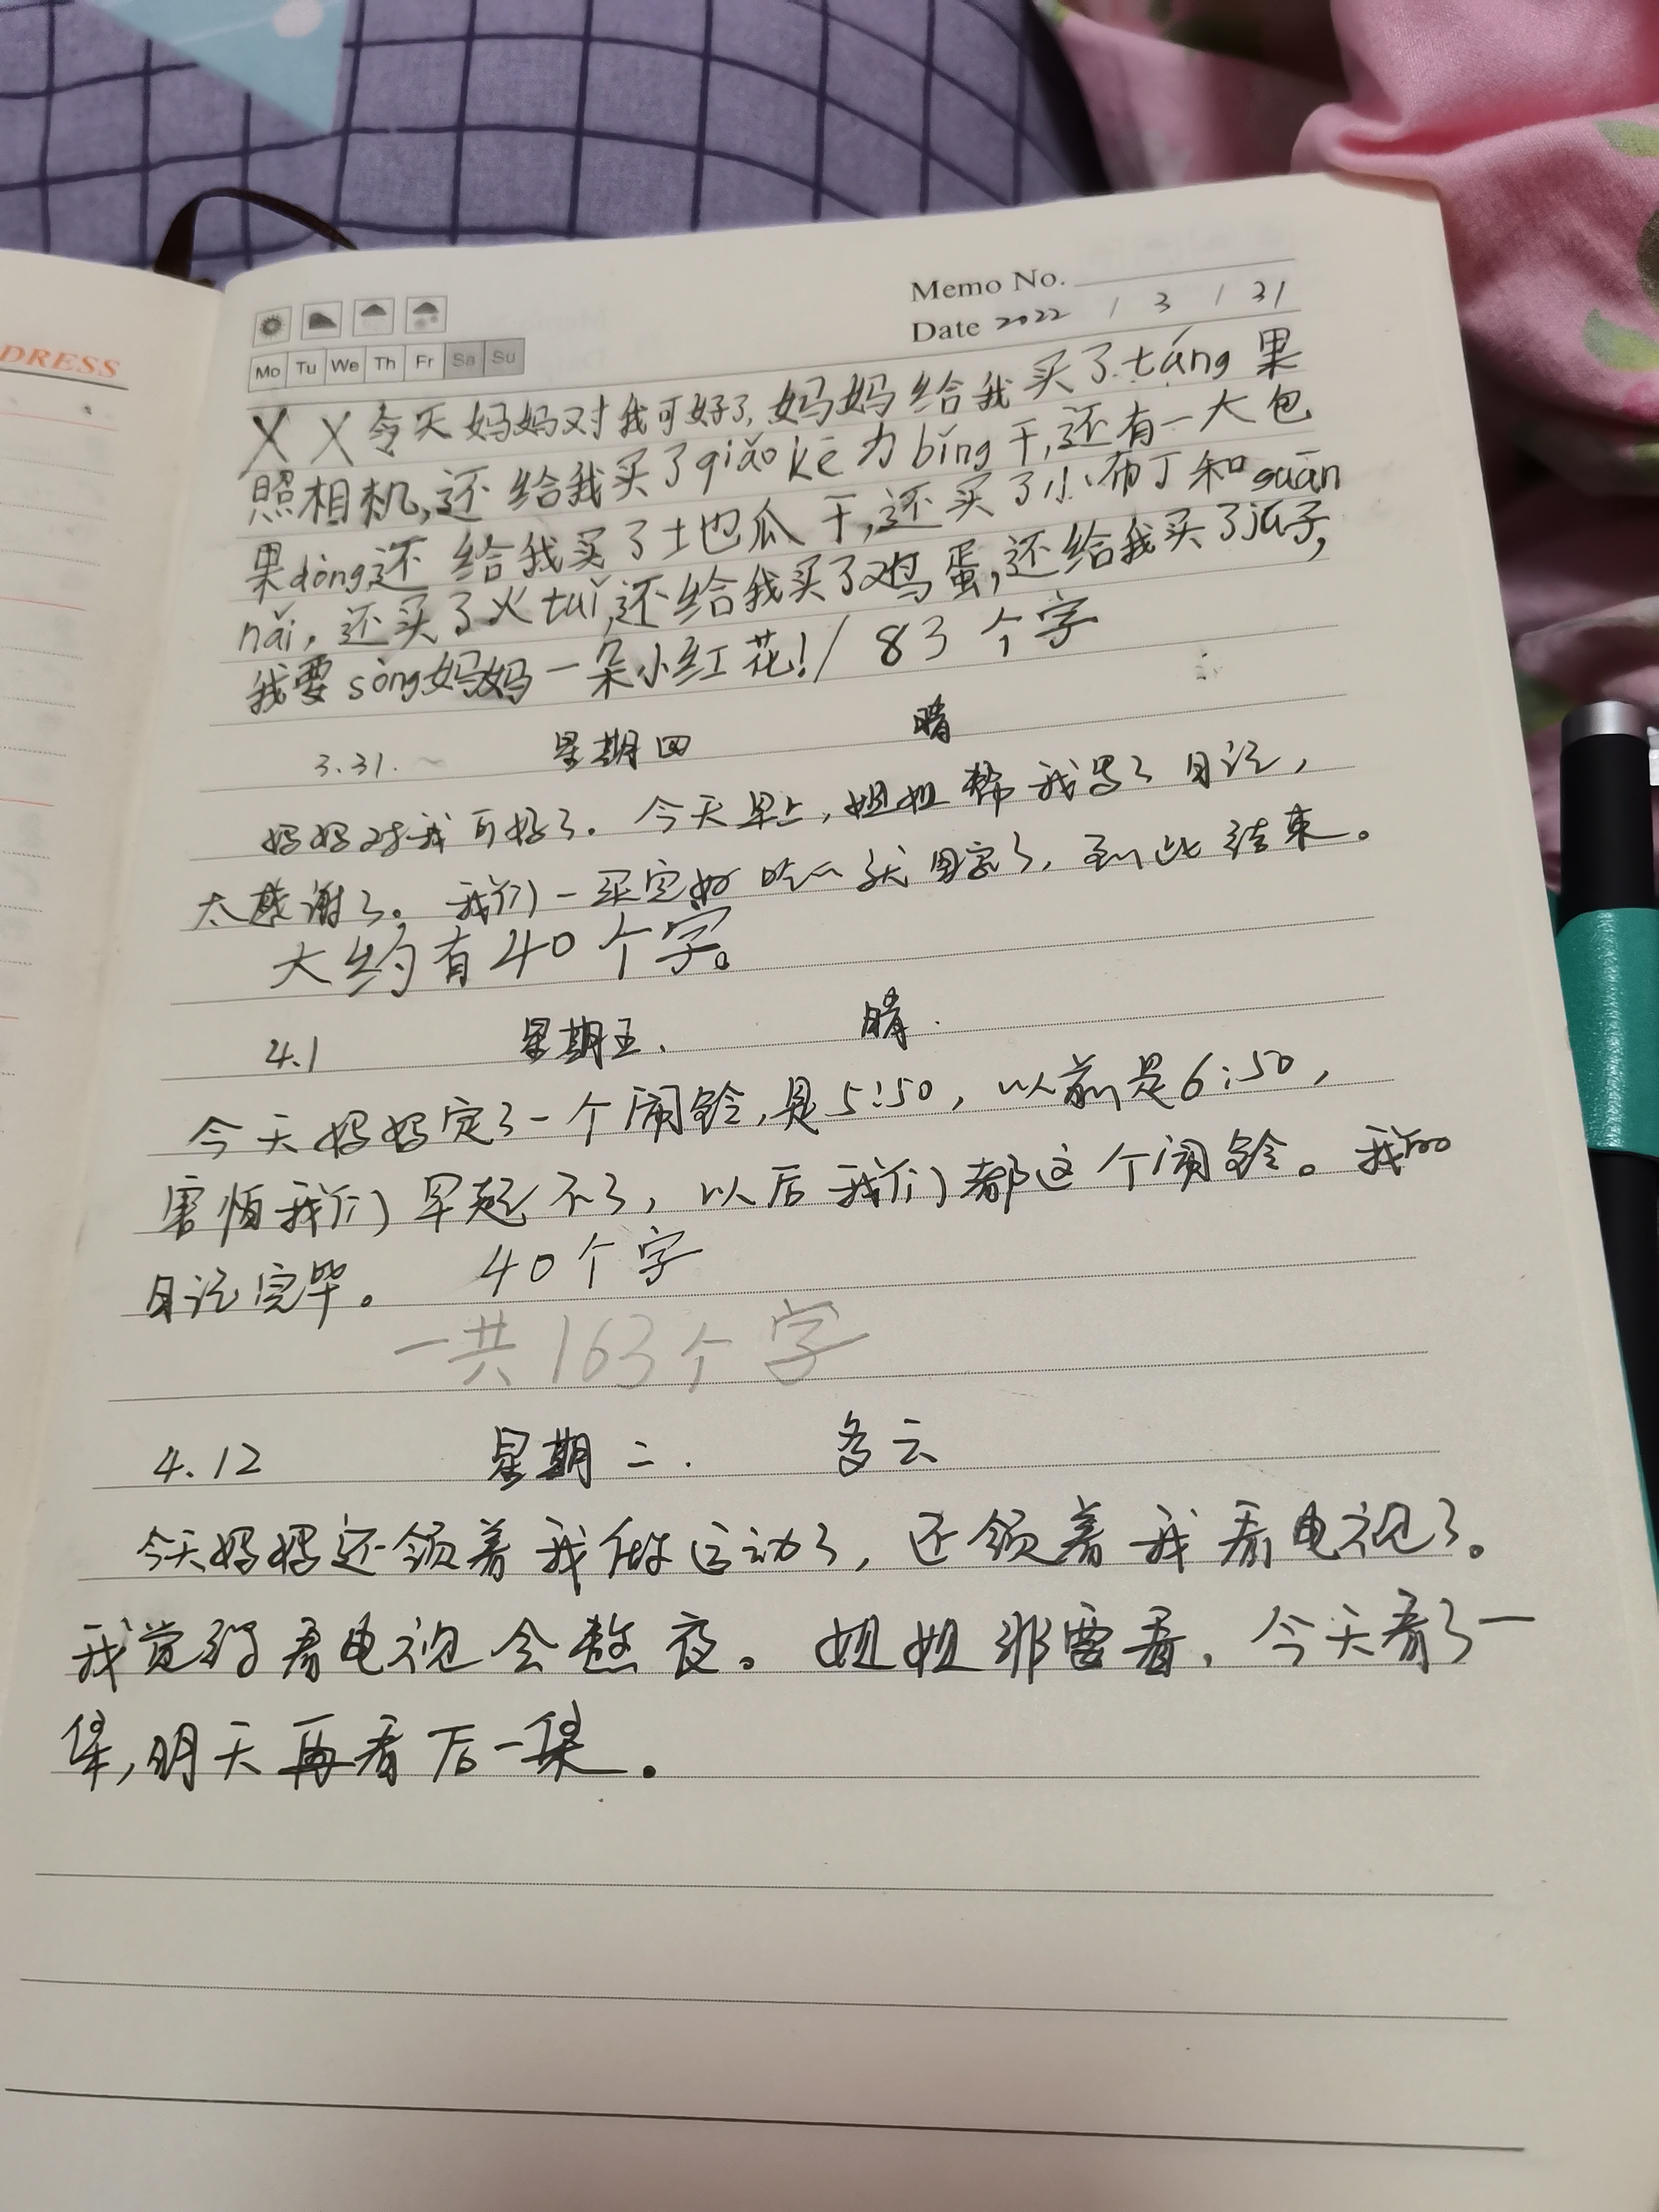 DRESS
Memo No.
Date 2022 / 3 / 31
Mo Tu We Th Fr Sa Su
X X 今天妈妈对我可好了,妈妈给我买了táng果
照相机,还给我买了qiǎo kē力bǐng干,还有一大包
果dòng还给我买了土也瓜干,还买了小布丁和suān
nǎi,还买了火tuǐ,还给我买了鸡蛋,还给我买了jú子,
我要sòng妈妈一朵小红花!/ 83个字
3.31. 星期四 晴
妈妈对我可好了。今天早上,姐姐帮我写了日记,
太感谢了。我们一买完好吃的就回家了,到此结束。
大约有40个字。
4.1 星期五. 晴.
今天妈妈定了一个闹铃,是5:50,以前是6:50,
害怕我们早起不了,以后我们都这个闹铃。我的
日记完毕。 40个字
一共163个字
4.12 星期二. 多云
今天妈妈还领着我做运动了,还领着我看电视了。
我觉得看电视会熬夜。姐姐非要看,今天看了一
集,明天再看后一集。